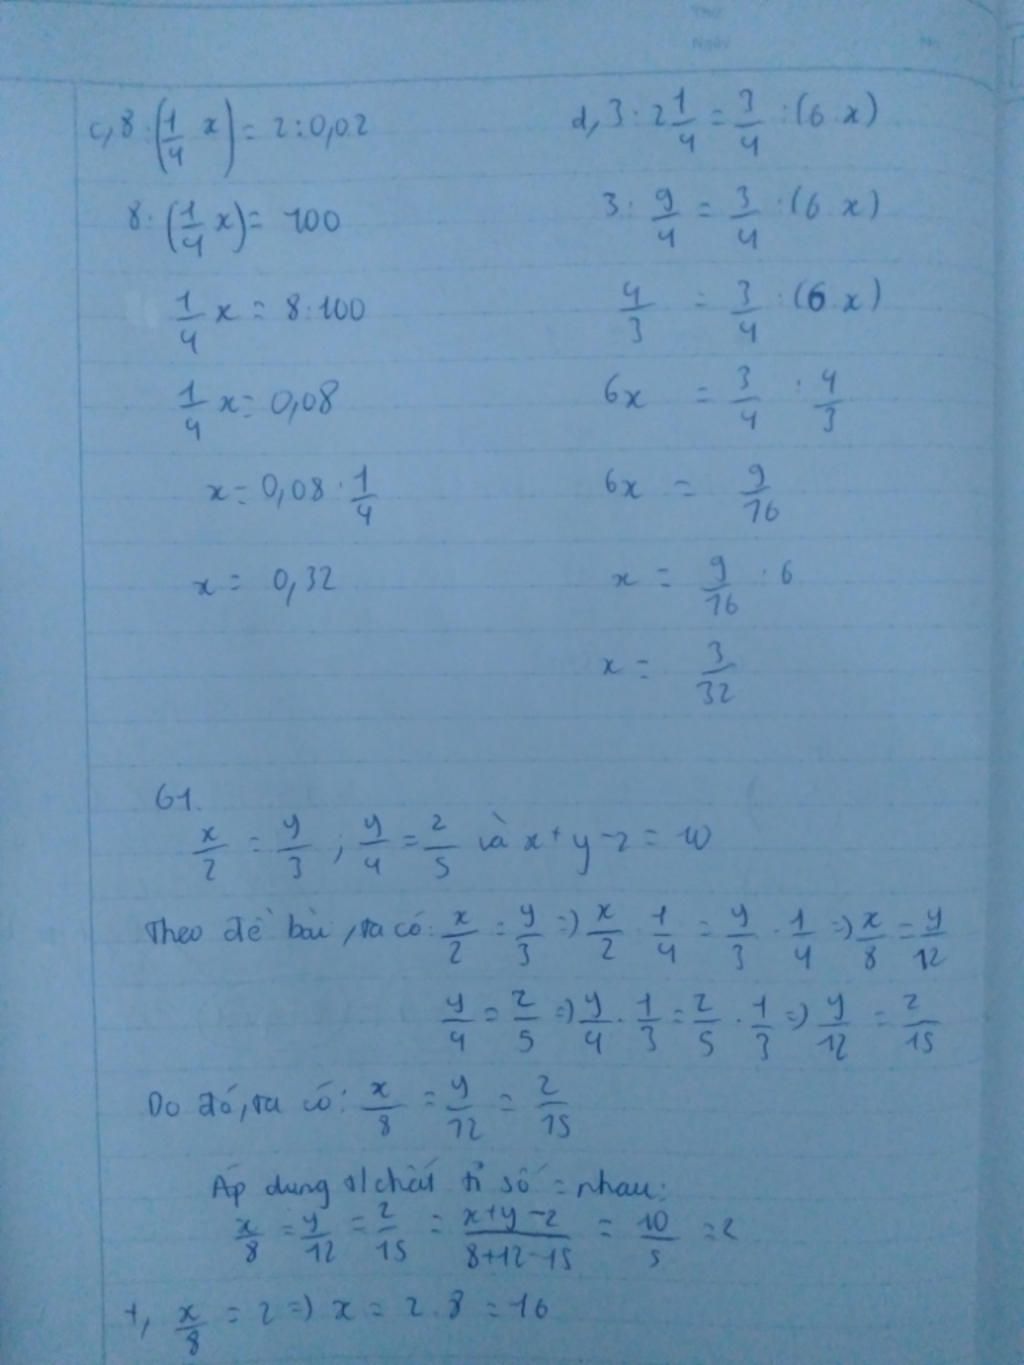 Thứ
Ngày No.
c, 8 : (1/4 x) = 2 : 0,02
8 : (1/4 x) = 100
1/4 x = 8 : 100
1/4 x = 0,08
x = 0,08 : 1/4
x = 0,32
d, 3 : 2 1/4 = 3/4 : (6 x)
3 : 9/4 = 3/4 : (6 x)
4/3 = 3/4 : (6 x)
6x = 3/4 : 4/3
6x = 9/16
x = 9/16 : 6
x = 3/32
61.
x/2 = y/3 ; y/4 = z/5 và x + y - z = 10
Theo đề bài, ta có: x/2 = y/3 => x/2 . 1/4 = y/3 . 1/4 => x/8 = y/12
y/4 = z/5 => y/4 . 1/3 = z/5 . 1/3 => y/12 = z/15
Do đó, ta có: x/8 = y/12 = z/15
Áp dụng t/chất tỉ số = nhau:
x/8 = y/12 = z/15 = x+y-z/8+12-15 = 10/5 = 2
+, x/8 = 2 => x = 2 . 8 = 16